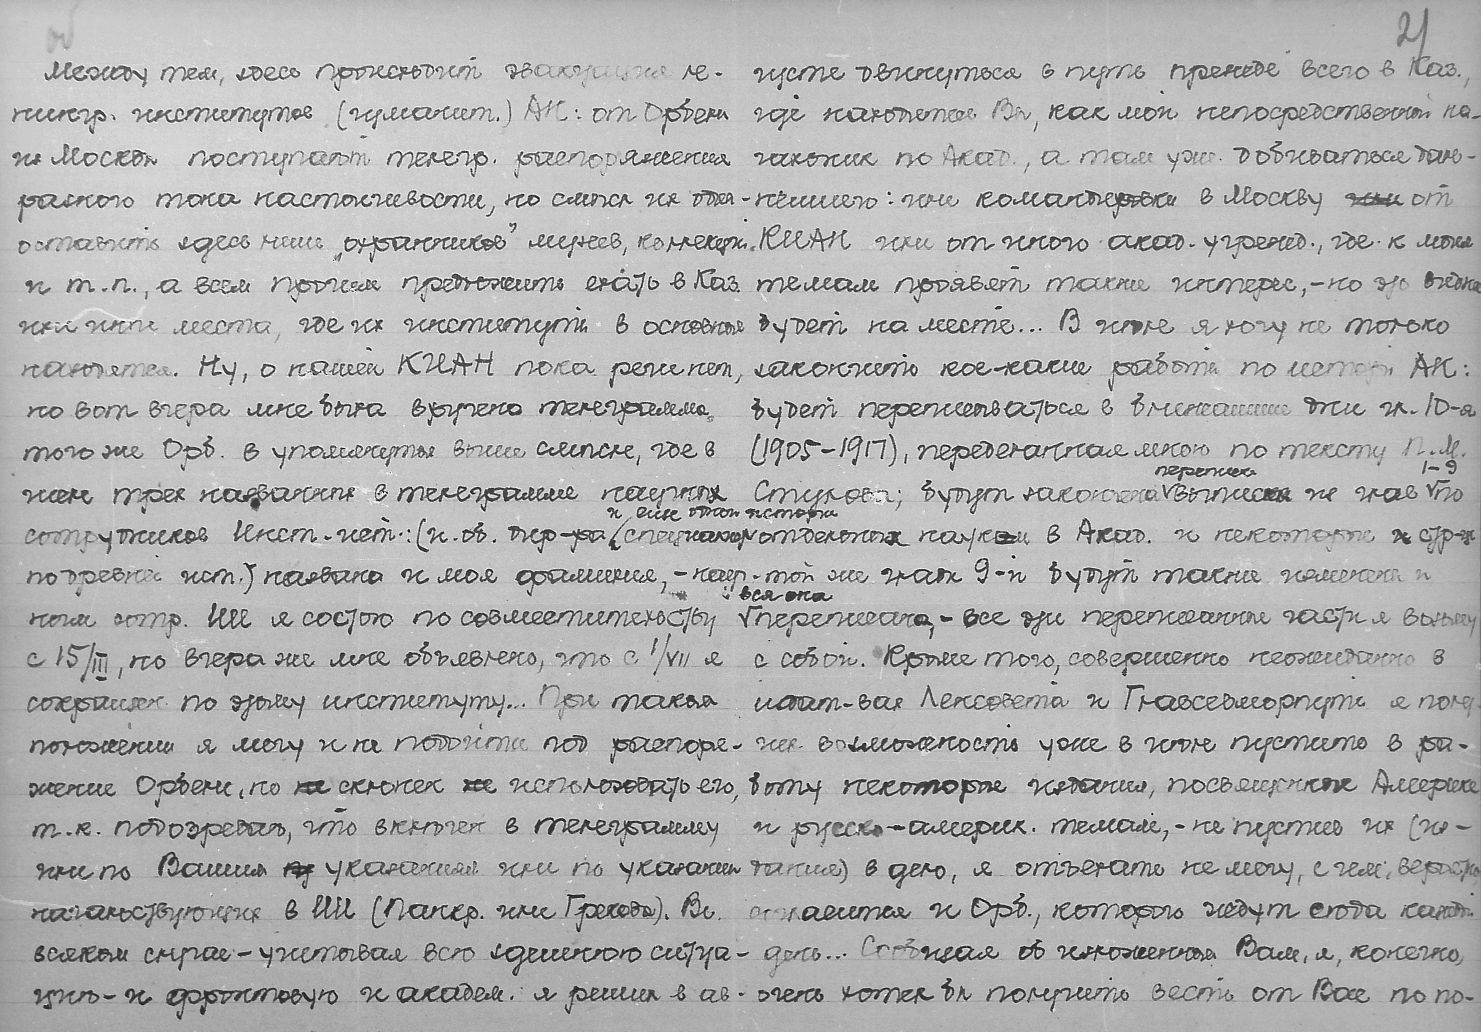 об
21
Между тем, здесь происходит эвакуация ле-
нингр. институтов (гуманит.) АН: от Орбели
из Москвы поступают телегр. распоряжения
разного тона настойчивости, но смысл их один -
оставить здесь лишь „охранников" музеев, коллекций
и т.п., а всем прочим предложить ехать в Каз.
или иные места, где их институты в основном
находятся. Ну, о нашей КИАН пока речи нет,
но вот вчера мне была вручена телеграмма
того же Орб. в упомянутом выше смысле, где в
числе трех названных в телеграмме научных
сотрудников Инст. ист.: (и.об. дир-ра и еще один историк (специалист
по древней ист.) названа и моя фамилия, - науч-
ным сотр. ИИ я состою по совместительству
с 15/III, но вчера же мне объявлено, что с 1/VII я
сокращен по этому институту... При таком
положении я могу и не подойти под распоря-
жение Орбели, но не склонен не использовать его,
т.к. подозреваю, что включен в телеграмму
или по Вашим указаниям или по указанию
начальствующих в ИИ (Панкр. или Грекова). Во
всяком случае - учитывая всю здешнюю ситуа-
цию - и фронтовую и академ. я решил в ав-
густе двинуться в путь прежде всего в Каз.,
где находитесь Вы, как мой непосредственный на-
чальник по Акад., а там уже добиваться даль-
нейшего: или командировки в Москву или от
КИАН или от иного акад. учрежд., где к моим
темам проявят также интерес, - но это видно
будет на месте... В июле я могу не только
закончить кое-какие работы по истории АН:
будет переписываться в ближайшие дни гл. 10-я
(1905-1917), переделанная мною по тексту П.М.
Стулова; будут закончена переписка выписки из глав 1-9 по
отдельным наукам в Акад. и некоторые стр-цы
той же главы 9-й будут также изменены и
вся она переписана, - все эти переписанные части я возьму
с собой. Кроме того, совершенно неожиданно в
издат-вах Ленсовета и Главсевморпути я полу-
чил возможность уже в июле пустить в ра-
боту некоторые издания, посвященные Америке
и русско-америк. темам, - не пустив их (из-
дания) в дело, я отъехать не могу, с чем, вероятно
согласится и Орб., которого ждут сюда каждый
день... Сообщая об изложенном Вам, я, конечно,
очень хотел бы получить весть от Вас по по-